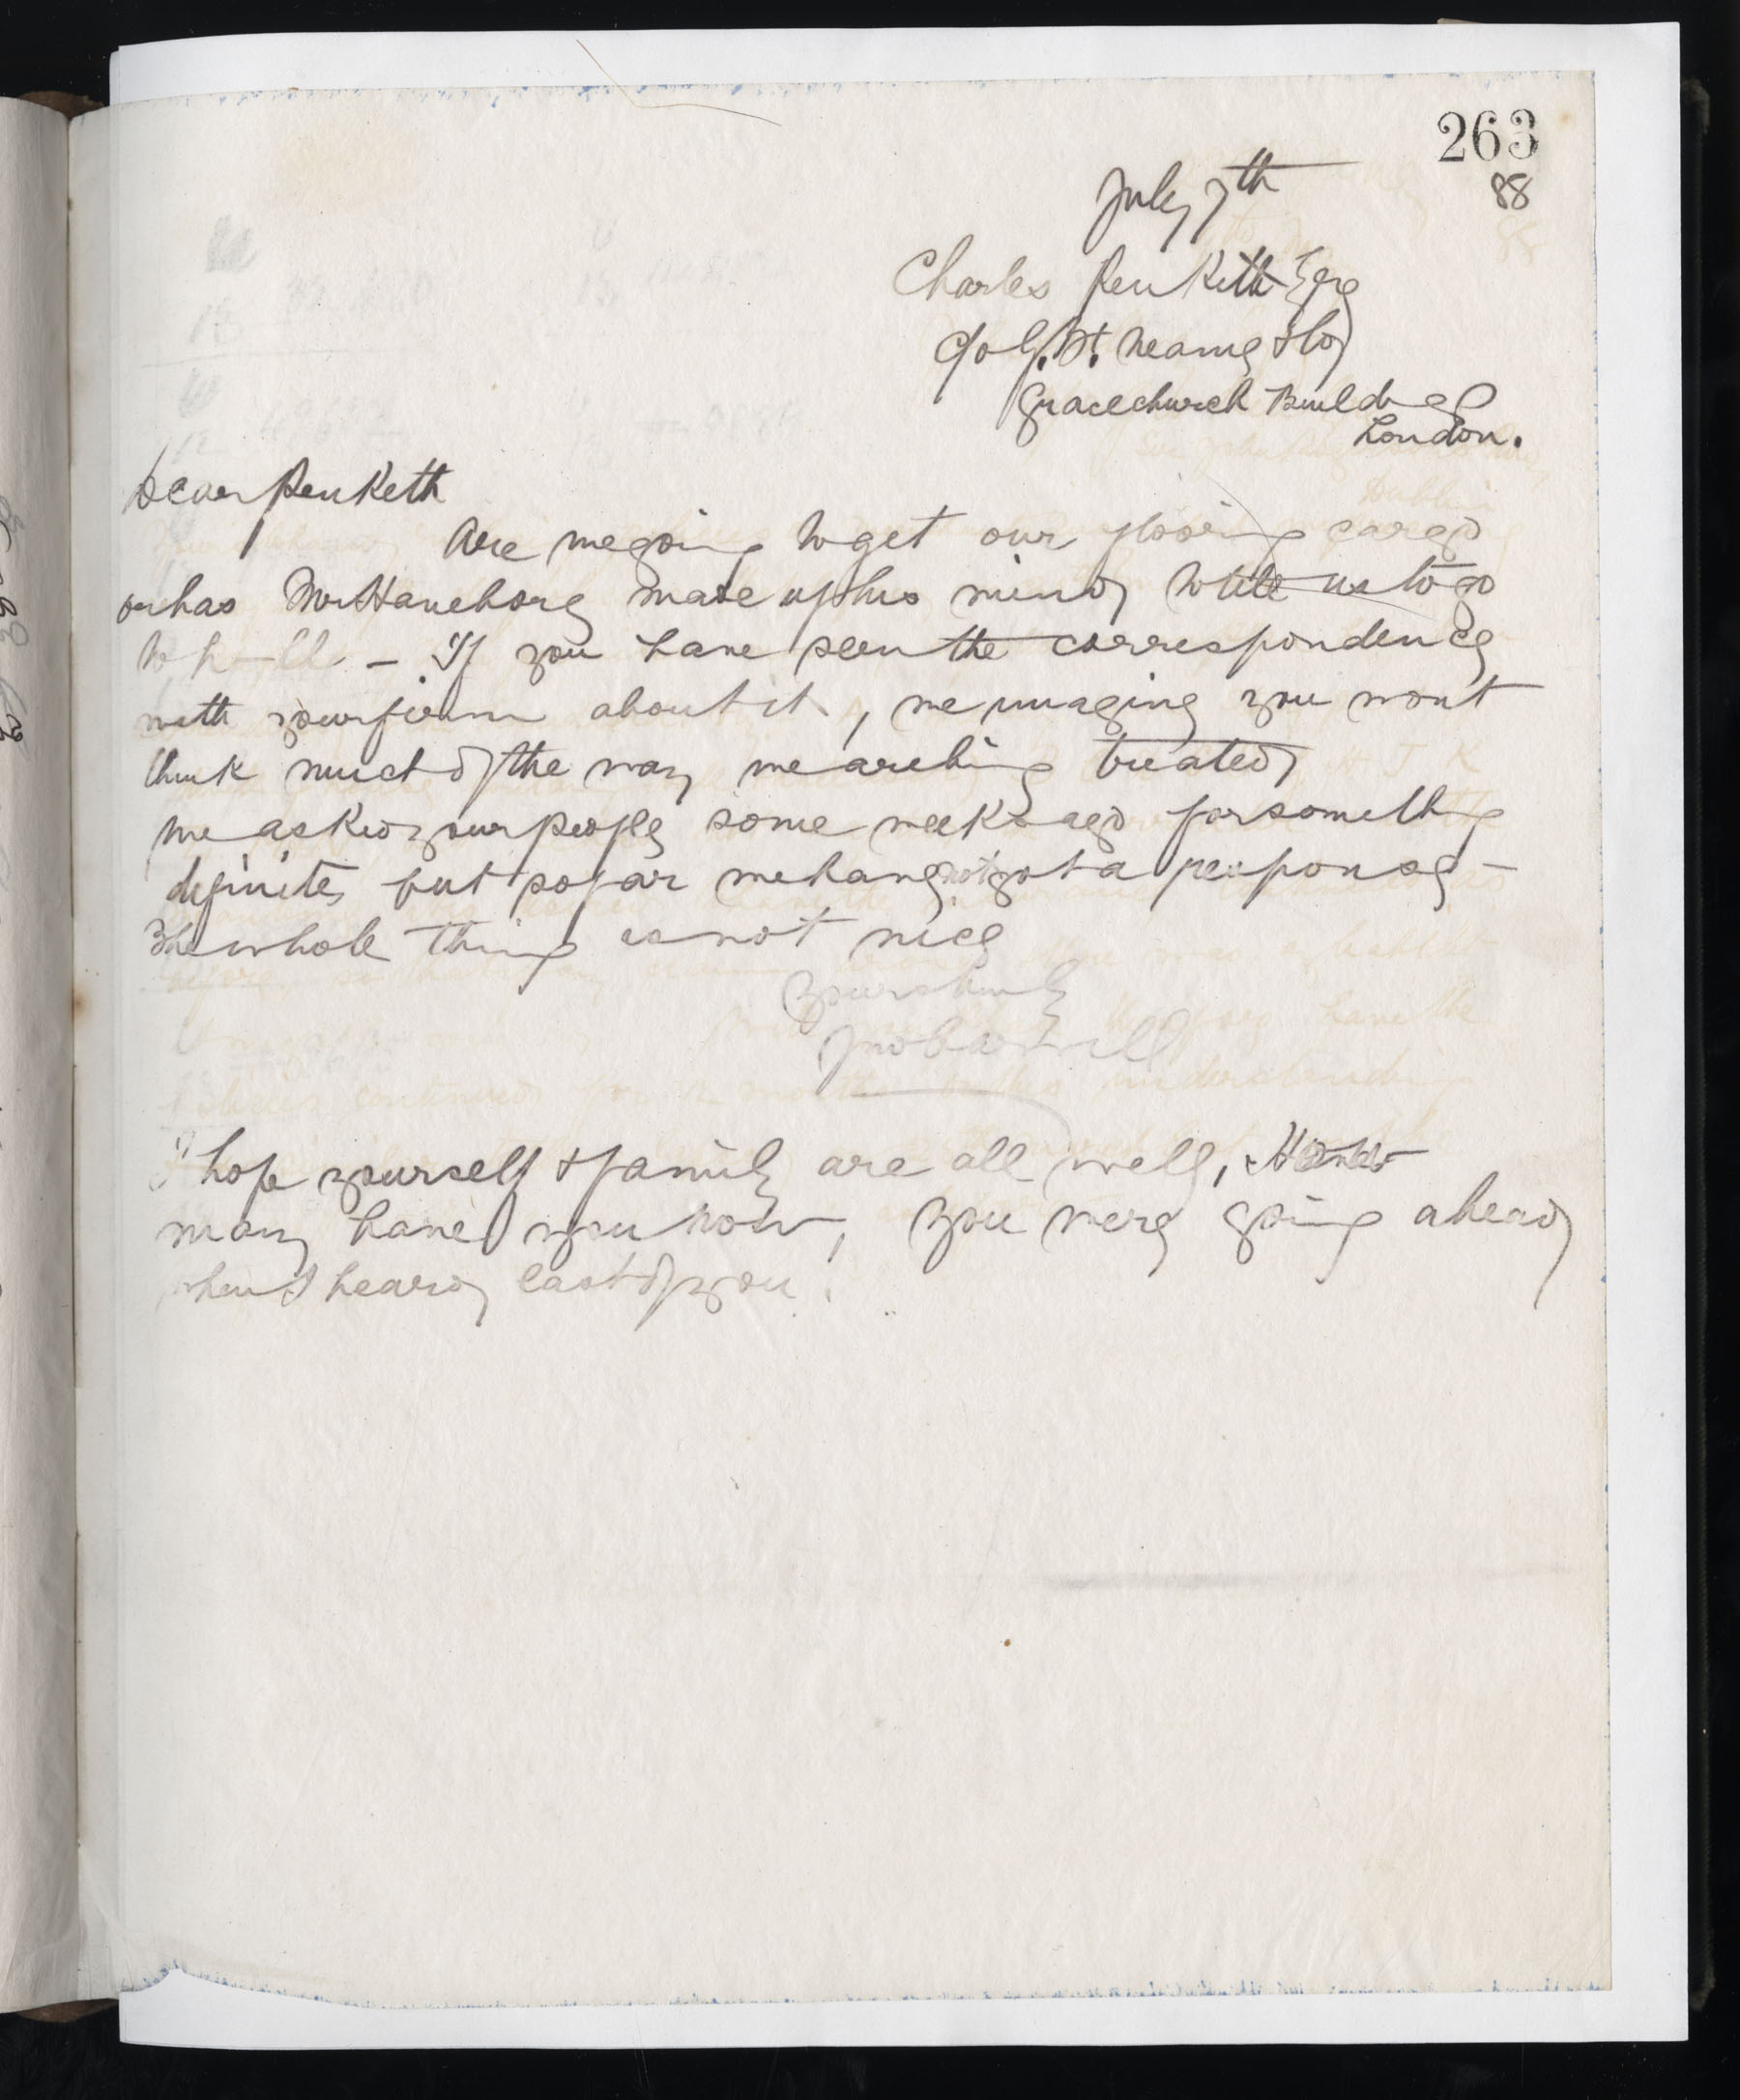 263
July 7th
88
Charles Penketh Esqre
c/o G. H. Nearng & Co
Gracechurch Buildings
London.
Dear Penketh
Are we going to get our flooring cargo
or has Mr Haneborg made up his mind to tell us to go
to h—ll – If you have seen the correspondence
with your firm about it, we imagine you wont
think much of the way we are being treated
We asked your people some weeks ago for something
definite, but so far we have not got a response –
The whole thing is not nice
Yours truly
Jno
I hope yourself & family are all well, How
many have you now, you were going ahead
when I heard last of you!